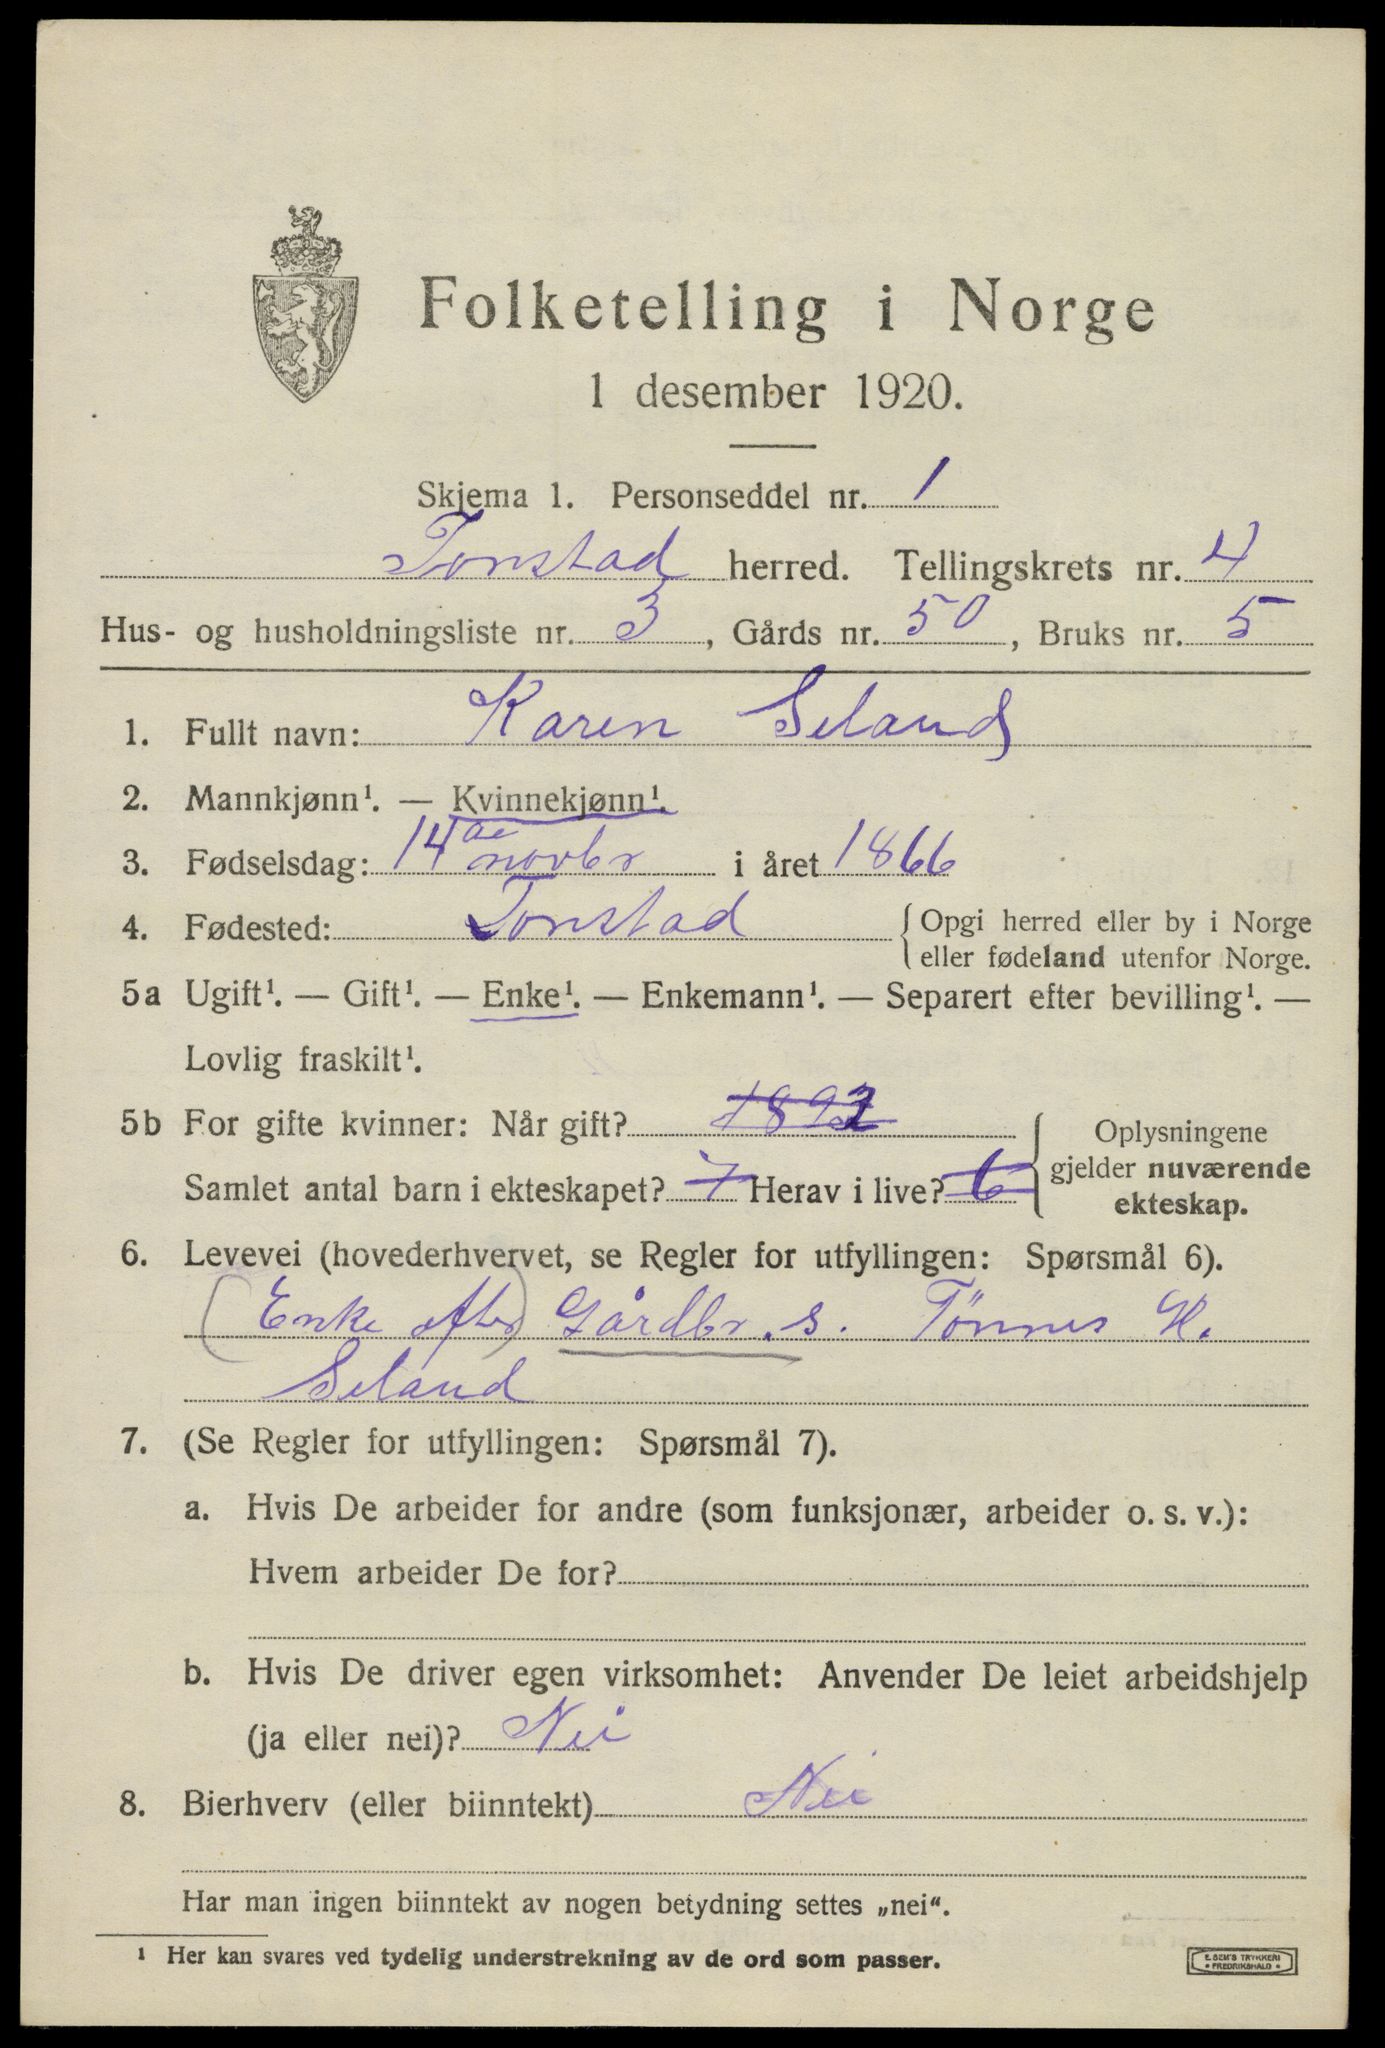 Folketelling i Norge
1 desember 1920.
Skjema 1. Personseddel nr. 1
Tonstad herred. Tellingskrets nr. 4
Hus- og husholdningsliste nr. 3, Gårds nr. 50, Bruks nr. 5
1. Fullt navn: Karen Seland
2. Mannkjønn¹. — Kvinnekjønn¹.
3. Fødselsdag: 14de novbr i året 1866
4. Fødested: Tonstad { Opgi herred eller by i Norge
eller fødeland utenfor Norge.
5a Ugift¹. — Gift¹. — Enke¹. — Enkemann¹. — Separert efter bevilling¹. —
Lovlig fraskilt¹.
5b For gifte kvinner: Når gift?
Samlet antal barn i ekteskapet? 7 Herav i live? 6
Oplysningene
gjelder nuværende
ekteskap.
6. Levevei (hovederhvervet, se Regler for utfyllingen: Spørsmål 6).
(Enke efter) Gårdbr. s. Tönnes H.
Seland
7. (Se Regler for utfyllingen: Spørsmål 7).
a. Hvis De arbeider for andre (som funksjonær, arbeider o. s. v.):
Hvem arbeider De for?
b. Hvis De driver egen virksomhet: Anvender De leiet arbeidshjelp
(ja eller nei)? Nei
8. Bierhverv (eller biinntekt) Nei
Har man ingen biinntekt av nogen betydning settes „nei“.
¹ Her kan svares ved tydelig understrekning av de ord som passer.
E. SEM'S TRYKKERI
• FREDRIKSHALD •